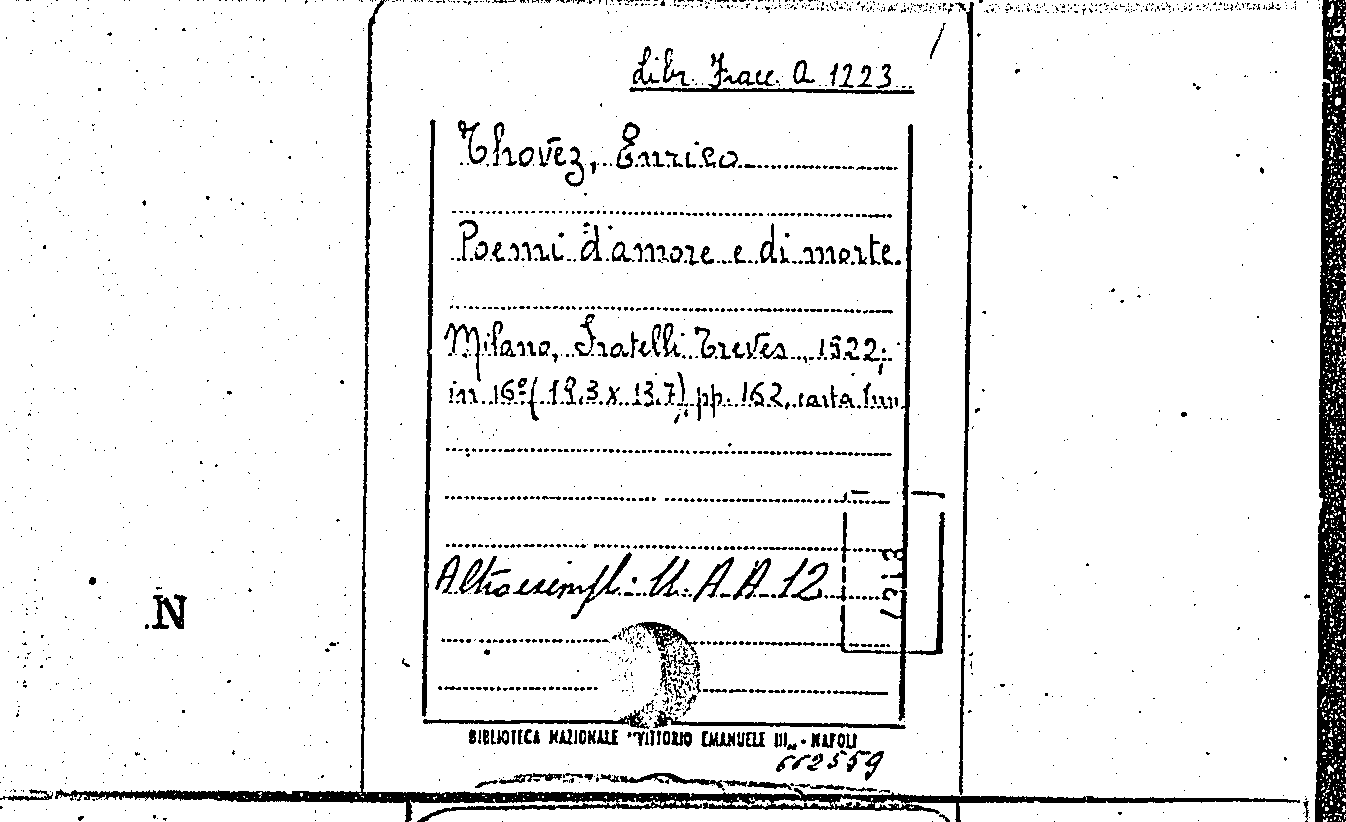 Libr. Fracc. A 1223
Thovez, Enrico
Poemi d'amore e di morte.
Milano, Fratelli Treves, 1922;
in 16º (19,3 x 13,7), pp. 162, carta
Altro esempl.: U. A A 12
N
BIBLIOTECA NAZIONALE "VITTORIO EMANUELE III„ - NAPOLI
662559